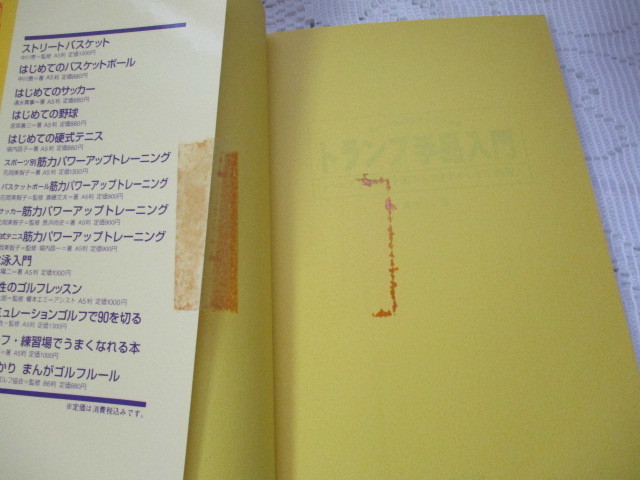 ストリートバスケット
中川恵=監修 A5判 定価1300円
はじめてのバスケットボール
中川恵=著 A5判 定価880円
はじめてのサッカー
A5判 定価880円
はじめての野球
A5判 定価880円
はじめての硬式テニス
堀内昌一=著 A5判 定価880円
スポーツ別筋力パワーアップトレーニング
石岡美智子= A5判 定価1300円
バスケットボール筋力パワーアップトレーニング
A5判 定価900円
サッカー筋力パワーアップトレーニング
A5判 定価900円
式テニス筋力パワーアップトレーニング
堀内昌一=著 A5判 定価900円
泳入門
二=著 A5判 定価1000円
性のゴルフレッスン
=監修 榎本エミー=アシスト A5判 定価1000円
ュレーションゴルフで90を切る
=監修 A5判 定価1300円
フ・練習場でうまくなれる本
=著 A5判 定価1000円
かり まんがゴルフルール
ゴルフ協会=監修 B6判 定価880円
※定価は消費税込みです。
トランプ